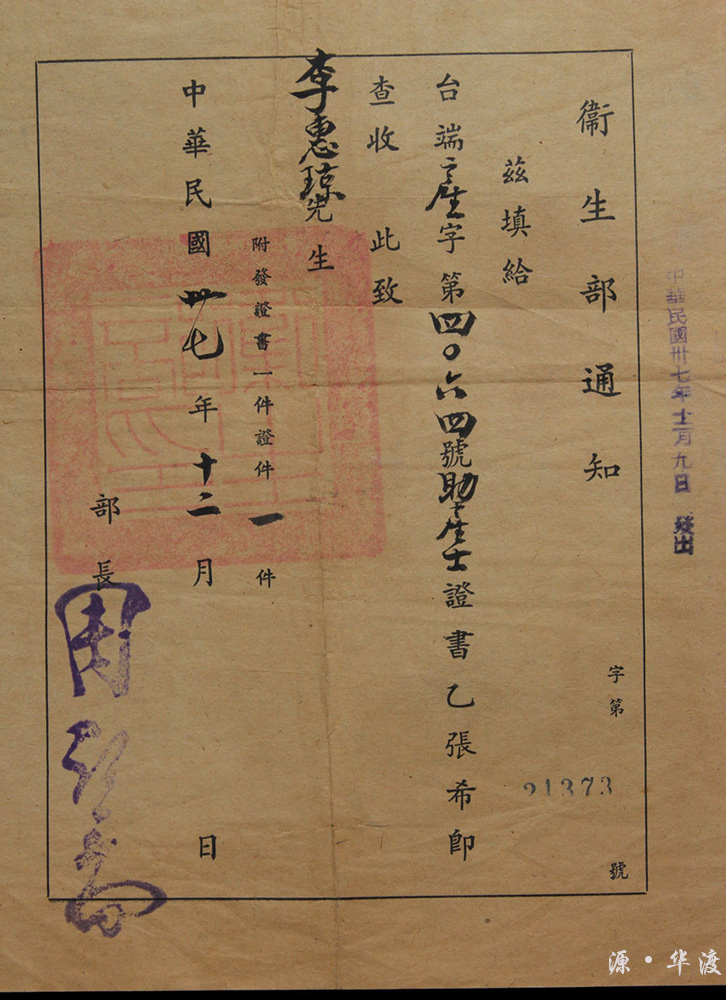 中華民國卅七年十二月九日 發出
衞生部通知
字第 21373 號
茲填給
台端產字第四〇六四號助產士證書乙張希即
查收 此致
李惠琼先生
附發證書一件證件一件
中華民國卅七年十二月 日
部長
源·华渡